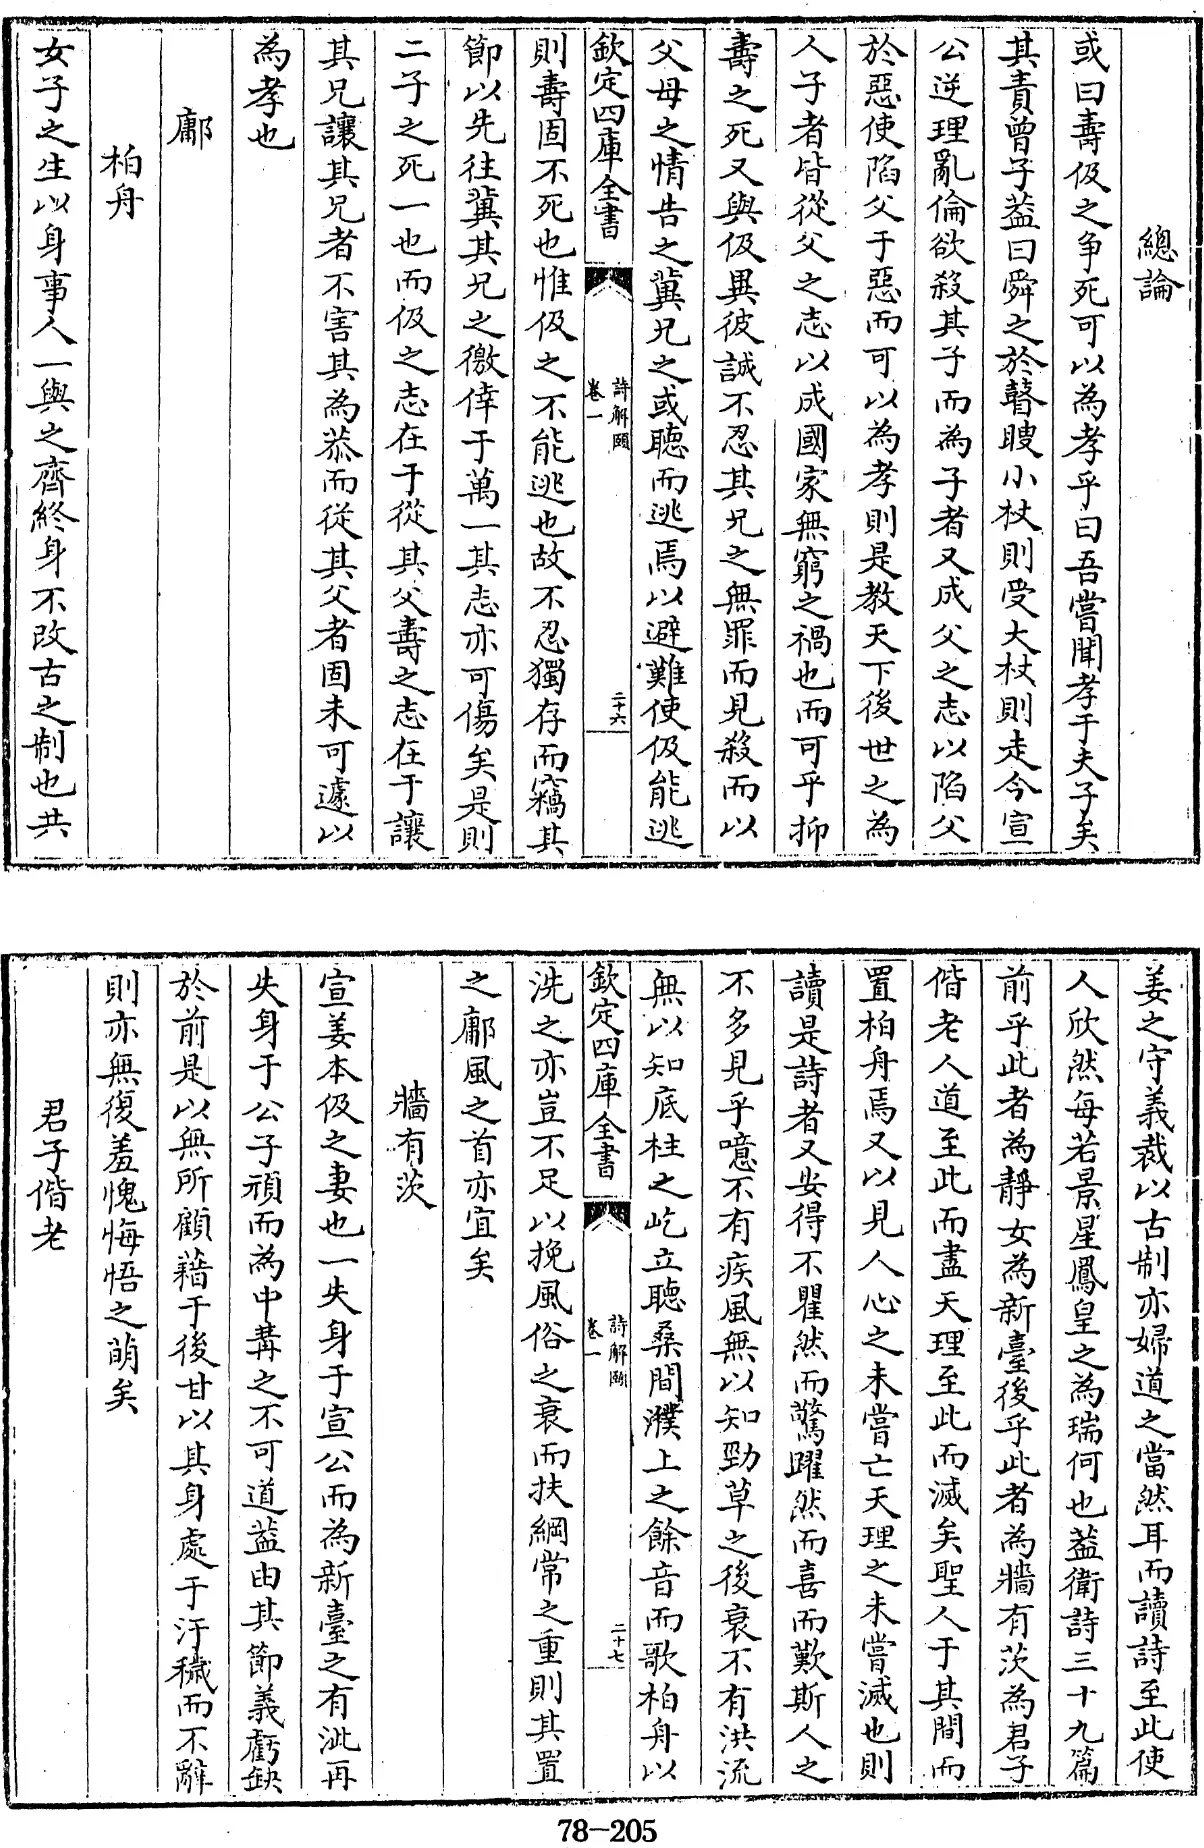 總論
或曰壽伋之争死可以為孝乎曰吾嘗聞孝于夫子矣
其責曾子葢曰舜之於瞽瞍小杖則受大杖則走今宣
公逆理亂倫欲殺其子而為子者又成父之志以陷父
於惡使陷父于惡而可以為孝則是教天下後世之為
人子者皆從父之志以成國家無窮之禍也而可乎抑
壽之死又與伋異彼誠不忍其兄之無罪而見殺而以
父母之情告之冀兄之或聽而逃焉以避難使伋能逃
欽定四庫全書
詩解頤
卷一
二十六
則壽固不死也惟伋之不能逃也故不忍獨存而竊其
節以先往冀其兄之徼倖于萬一其志亦可傷矣是則
二子之死一也而伋之志在于從其父壽之志在于讓
其兄讓其兄者不害其為恭而從其父者固未可遽以
為孝也
鄘
柏舟
女子之生以身事人一與之齊終身不改古之制也共
姜之守義裁以古制亦婦道之當然耳而讀詩至此使
人欣然每若景星鳳皇之為瑞何也葢衛詩三十九篇
前乎此者為靜女為新臺後乎此者為牆有茨為君子
偕老人道至此而盡天理至此而滅矣聖人于其間而
置柏舟焉又以見人心之未嘗亡天理之未嘗滅也則
讀是詩者又安得不瞿然而驚躍然而喜而歎斯人之
不多見乎噫不有疾風無以知勁草之後衰不有洪流
無以知底柱之屹立聽桑間濮上之餘音而歌柏舟以
欽定四庫全書
詩解頤
卷一
二十七
洗之亦豈不足以挽風俗之衰而扶綱常之重則其置
之鄘風之首亦宜矣
牆有茨
宣姜本伋之妻也一失身于宣公而為新臺之有泚再
失身于公子頑而為中冓之不可道葢由其節義虧缺
於前是以無所顧藉于後甘以其身處于汙穢而不辭
則亦無復羞愧悔悟之萌矣
君子偕老
78-205